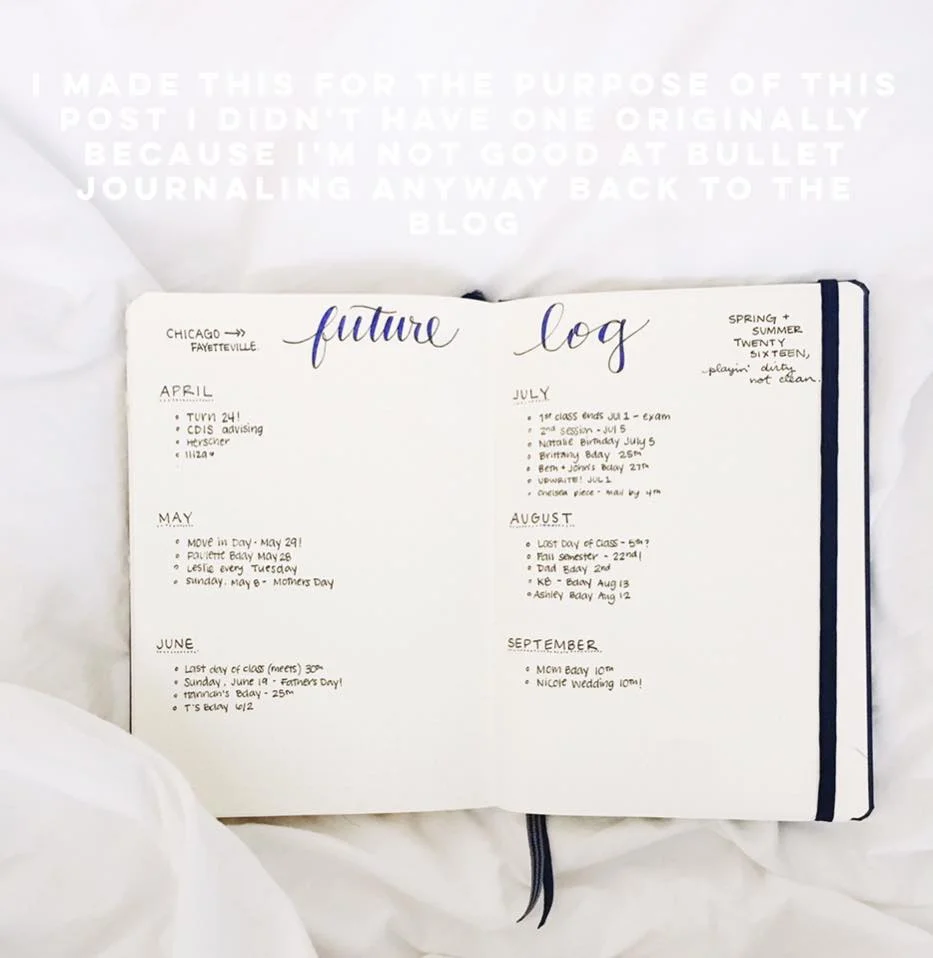 I MADE THIS FOR THE PURPOSE OF THIS
POST I DIDN'T HAVE ONE ORIGINALLY
BECAUSE I'M NOT GOOD AT BULLET
JOURNALING ANYWAY BACK TO THE
BLOG
CHICAGO →
FAYETTEVILLE.
future
log
SPRING +
SUMMER
TWENTY
SIXTEEN,
playin' dirty
not clean.
APRIL
• TURN 24!
• CDIS advising
• Herscher
MAY
• Move in Day - May 29!
• Paulette Bday May 28
• Leslie every Tuesday
• Sunday, May 8 - Mothers Day
JUNE
• Last day of class (meets) 30th
• Sunday, June 19 - Father's Day!
• Hannah's Bday - 25th
• T's Bday 6/2
JULY
• 1st class ends Jul 1 - exam
• 2nd session - Jul 5
• Natalie Birthday July 5
• Brittany Bday 25th
• Beth + John's Bday 27th
• UPWRITE! JUL 1
• Chelsea piece - mail by 4th
AUGUST
• Last Day of Class - 5th?
• Fall semester - 22nd!
• Dad Bday 2nd
• KB - Bday Aug 13
• Ashley Bday Aug 12
SEPTEMBER
• Mom Bday 10th
• Nicole Wedding 10th!